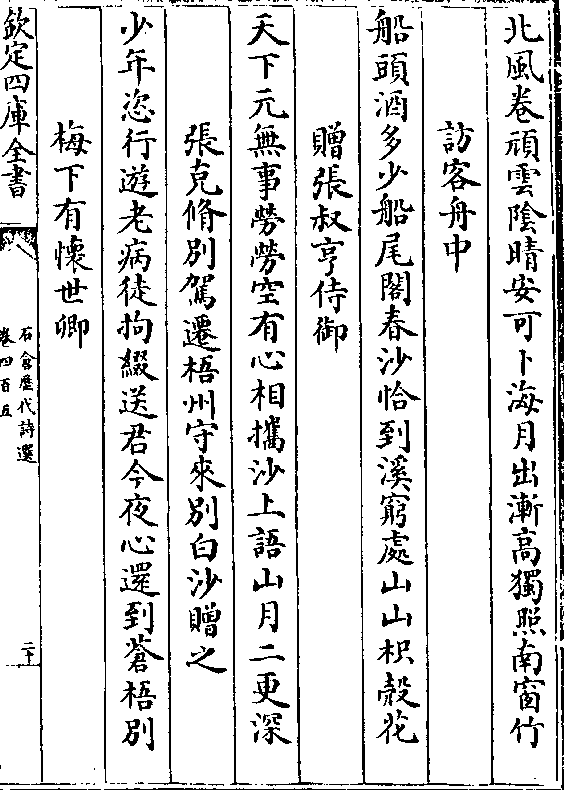 北風卷頑雲陰晴安可卜海月出漸高獨照南窗竹
訪客舟中
船頭酒多少船尾閣春沙恰到溪窮處山山枳殻花
贈張叔亨侍御
天下元無事勞勞空有心相攜沙上語山月二更深
張克脩別駕遷梧州守來別白沙贈之
少年恣行遊老病徒拘綴送君今夜心還到蒼梧別
梅下有懷世卿
欽定四庫全書
石倉歷代詩選
卷四百五
二十